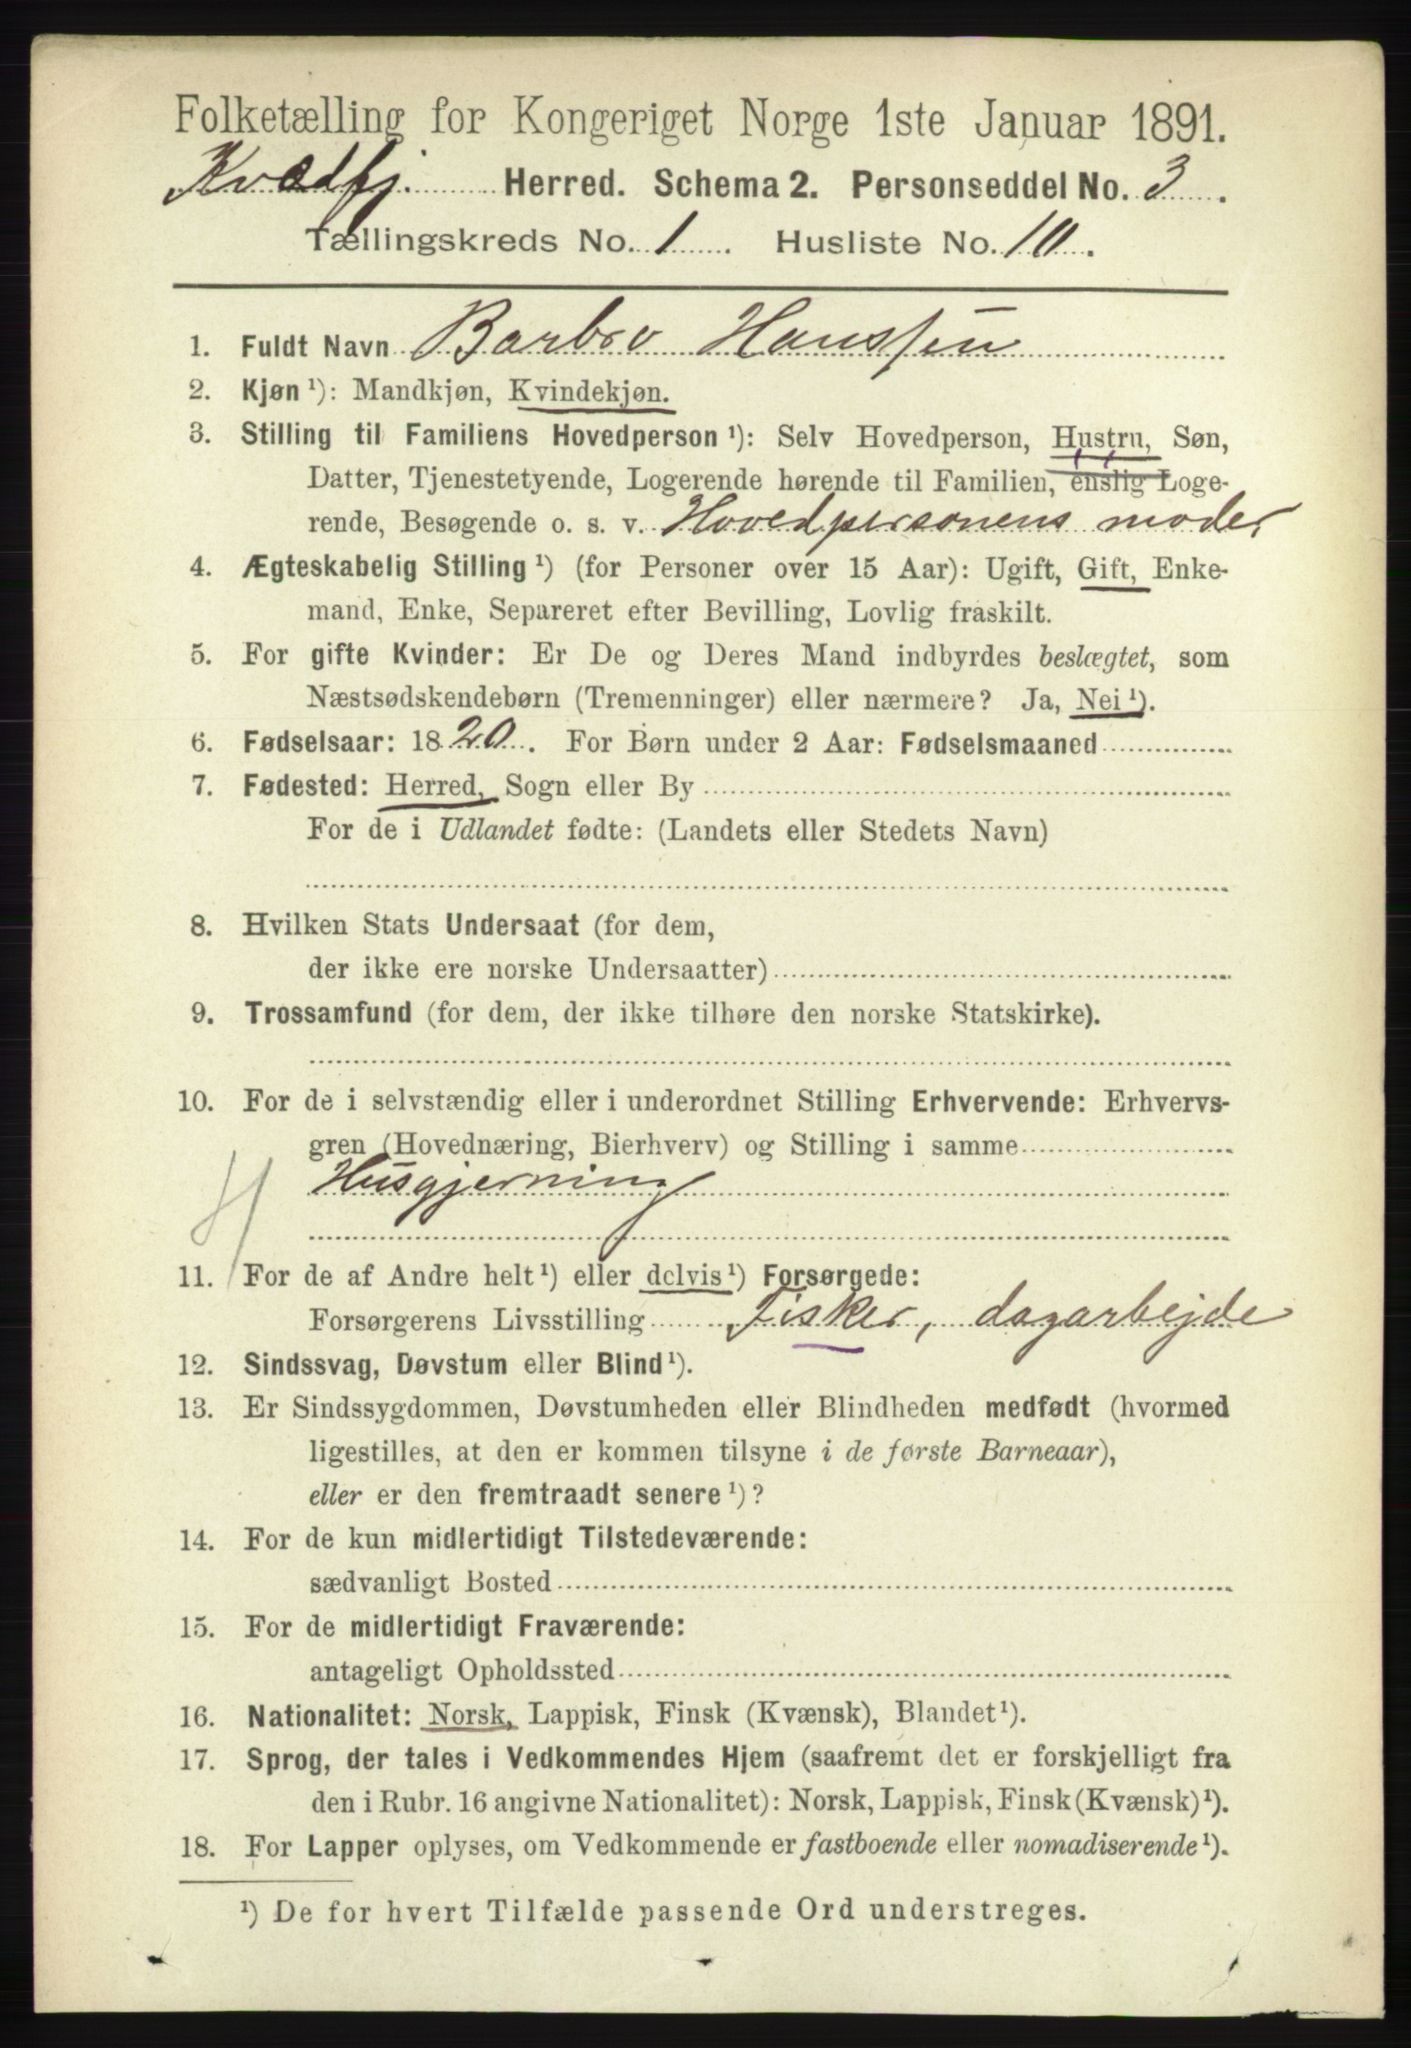 Folketælling for Kongeriget Norge 1ste Januar 1891.
Kvædfj. Herred. Schema 2. Personseddel No. 3.
Tællingskreds No. 1. Husliste No. 10.
1. Fuldt Navn Barbro Hanssen
2. Kjøn ¹): Mandkjøn, Kvindekjøn.
3. Stilling til Familiens Hovedperson ¹): Selv Hovedperson, Hustru, Søn,
Datter, Tjenestetyende, Logerende hørende til Familien, enslig Loge-
rende, Besøgende o. s. v. Hovedpersonens moder
4. Ægteskabelig Stilling ¹) (for Personer over 15 Aar): Ugift, Gift, Enke-
mand, Enke, Separeret efter Bevilling, Lovlig fraskilt.
5. For gifte Kvinder: Er De og Deres Mand indbyrdes beslægtet, som
Næstsødskendebørn (Tremenninger) eller nærmere? Ja, Nei ¹).
6. Fødselsaar: 1820. For Børn under 2 Aar: Fødselsmaaned
7. Fødested: Herred, Sogn eller By
For de i Udlandet fødte: (Landets eller Stedets Navn)
8. Hvilken Stats Undersaat (for dem,
der ikke ere norske Undersaatter)
9. Trossamfund (for dem, der ikke tilhøre den norske Statskirke).
10. For de i selvstændig eller i underordnet Stilling Erhvervende: Erhvervs-
gren (Hovednæring, Bierhverv) og Stilling i samme
Husgjerning
H
11. For de af Andre helt ¹) eller delvis ¹) Forsørgede:
Forsørgerens Livsstilling Fisker, dagarbejde
12. Sindssvag, Døvstum eller Blind ¹).
13. Er Sindssygdommen, Døvstumheden eller Blindheden medfødt (hvormed
ligestilles, at den er kommen tilsyne i de første Barneaar),
eller er den fremtraadt senere ¹)?
14. For de kun midlertidigt Tilstedeværende:
sædvanligt Bosted
15. For de midlertidigt Fraværende:
antageligt Opholdssted
16. Nationalitet: Norsk, Lappisk, Finsk (Kvænsk), Blandet ¹).
17. Sprog, der tales i Vedkommendes Hjem (saafremt det er forskjelligt fra
den i Rubr. 16 angivne Nationalitet): Norsk, Lappisk, Finsk (Kvænsk) ¹).
18. For Lapper oplyses, om Vedkommende er fastboende eller nomadiserende ¹).
¹) De for hvert Tilfælde passende Ord understreges.